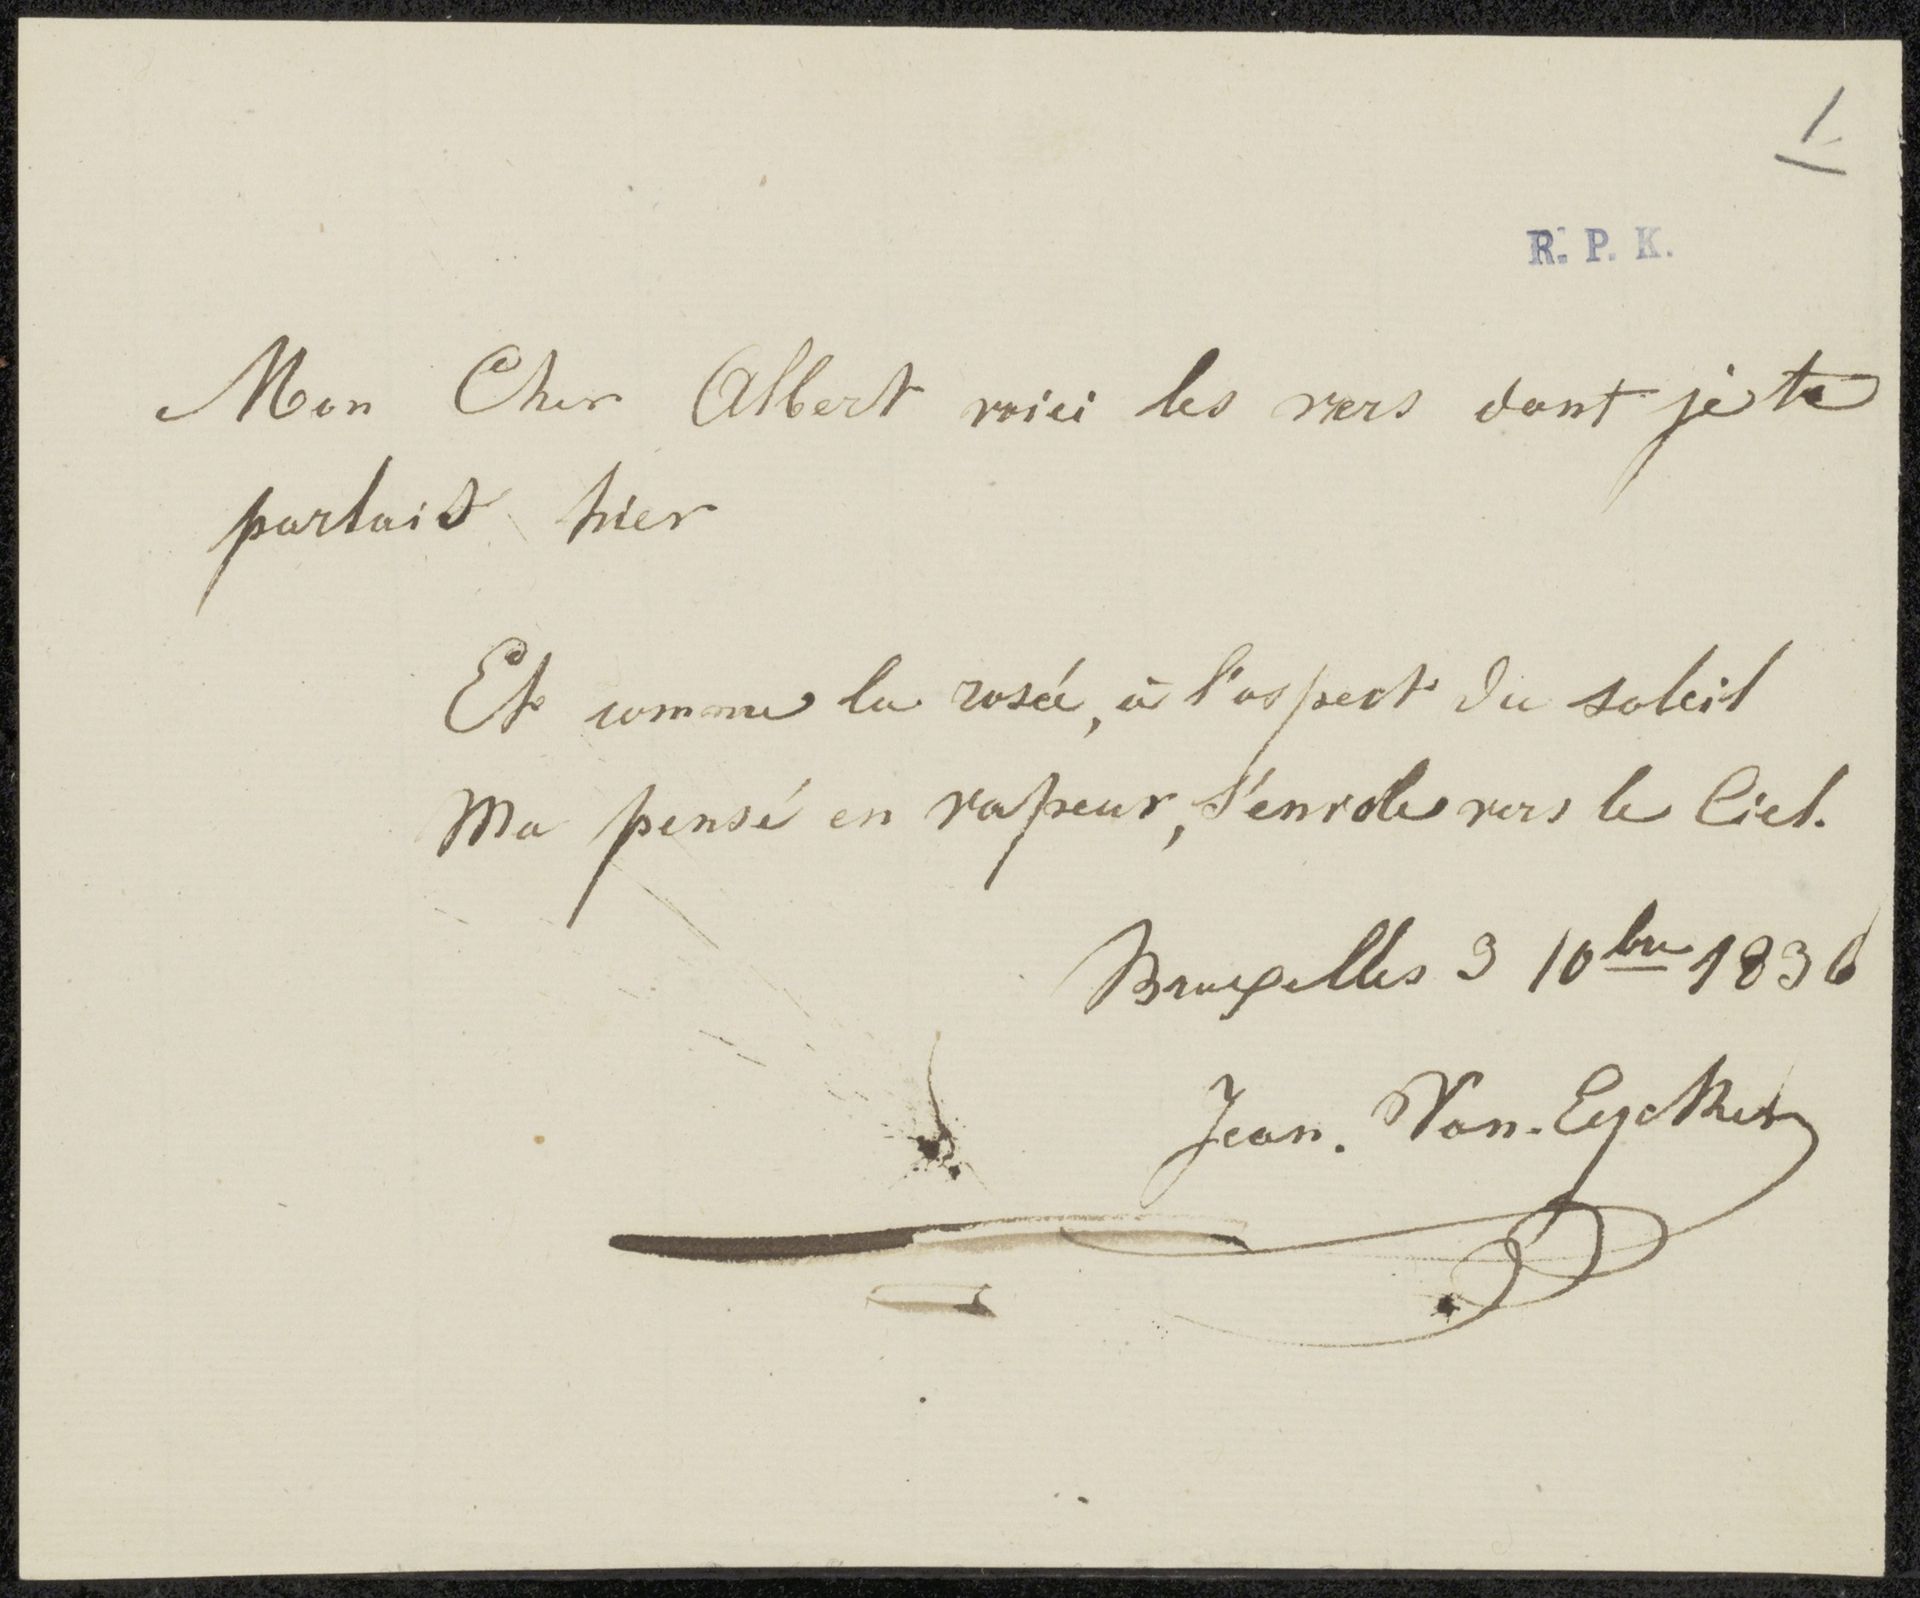 1
R. P. K.
Mon Cher Albert voici les vers dont je te
parlait hier
Et comme la rosée, à l'aspect du soleil
Ma pensé en vapeur, s'envole vers le Ciel.
Bruxelles 3 10bre 1836
Jean. Van-Eyckken